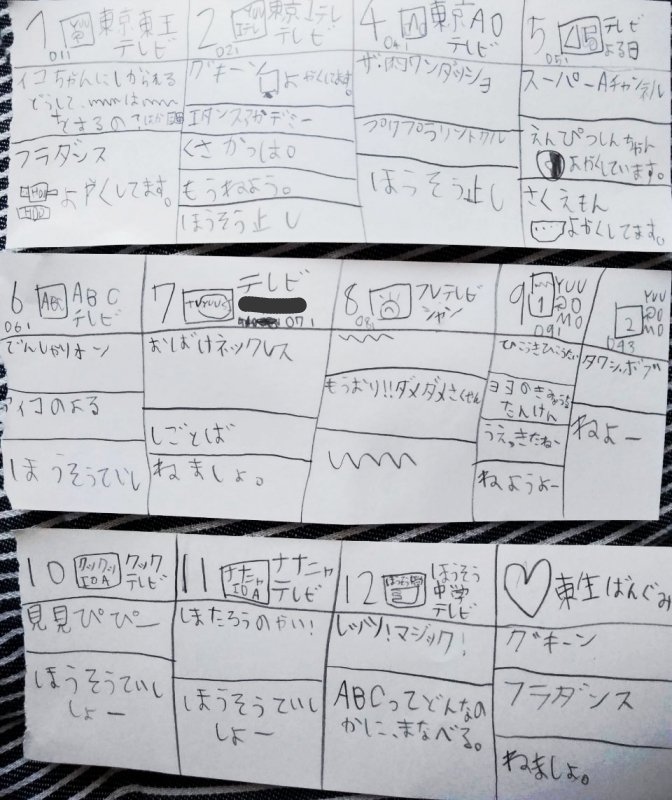 1 東京東王
011 テレビ
ィコちゃんにしかられる
どうして、
をするの?
フラダンス
HDD よやくしてます。
2 東京1テレ
021 テレビ
グキーン
よやくしてます。
エダンスアカデミー
くさかっは。
もうねよう。
ほうそう止し
4 東京AO
041 テレビ
ザ・肉ワンダッショ
プリプラリントクル
ほうそう止し
5 テレビ
051 よる日
スーパーAチャンネル
えんぴつしんちゃん
よやくしています。
さくえもん
よやくしてます。
6 ABC ABC
061 テレビ
でんしゃりオーン
アイコのよる
ほうそうていし
7 TVYUUU テレビ
071
おばけネックレス
しごとば
ねましょ。
8 フレテレビ
081 ジャン
もうおり!!ダメダメさくせん
9 1 YUU
091 MO
ひこうきひこうたい
ヨヨのき
たんけん
うえっきたねー
ねようよー
2 YUU
093 MO
タワシ・ボブ
ねよー
10 クックッ IOA クック
テレビ
見見ぴぴー
ほうそうていし
しょー
11 ナナニャ IOA ナナニャ
テレビ
しまたろうのやい!
ほうそうていし
しょー
12 ほうそう
中学
テレビ
レッツ!マジック!
ABCってどんなの
かに、まなべる。
東生ばんぐみ
グキーン
フラダンス
ねましょ。